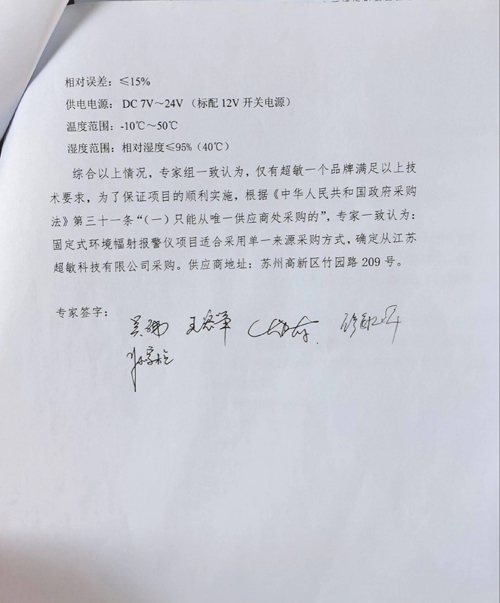 相对误差：≤15%
供电电源： DC 7V～24V （标配 12V 开关电源）
温度范围：-10℃～50℃
湿度范围：相对湿度≤95%（40℃）
综合以上情况，专家组一致认为，仅有超敏一个品牌满足以上技
术要求，为了保证项目的顺利实施，根据《中华人民共和国政府采购
法》第三十一条“（一）只能从唯一供应商处采购的”，专家一致认为：
固定式环境辐射报警仪项目适合采用单一来源采购方式，确定从江苏
超敏科技有限公司采购。供应商地址：苏州高新区竹园路 209 号。
专家签字：